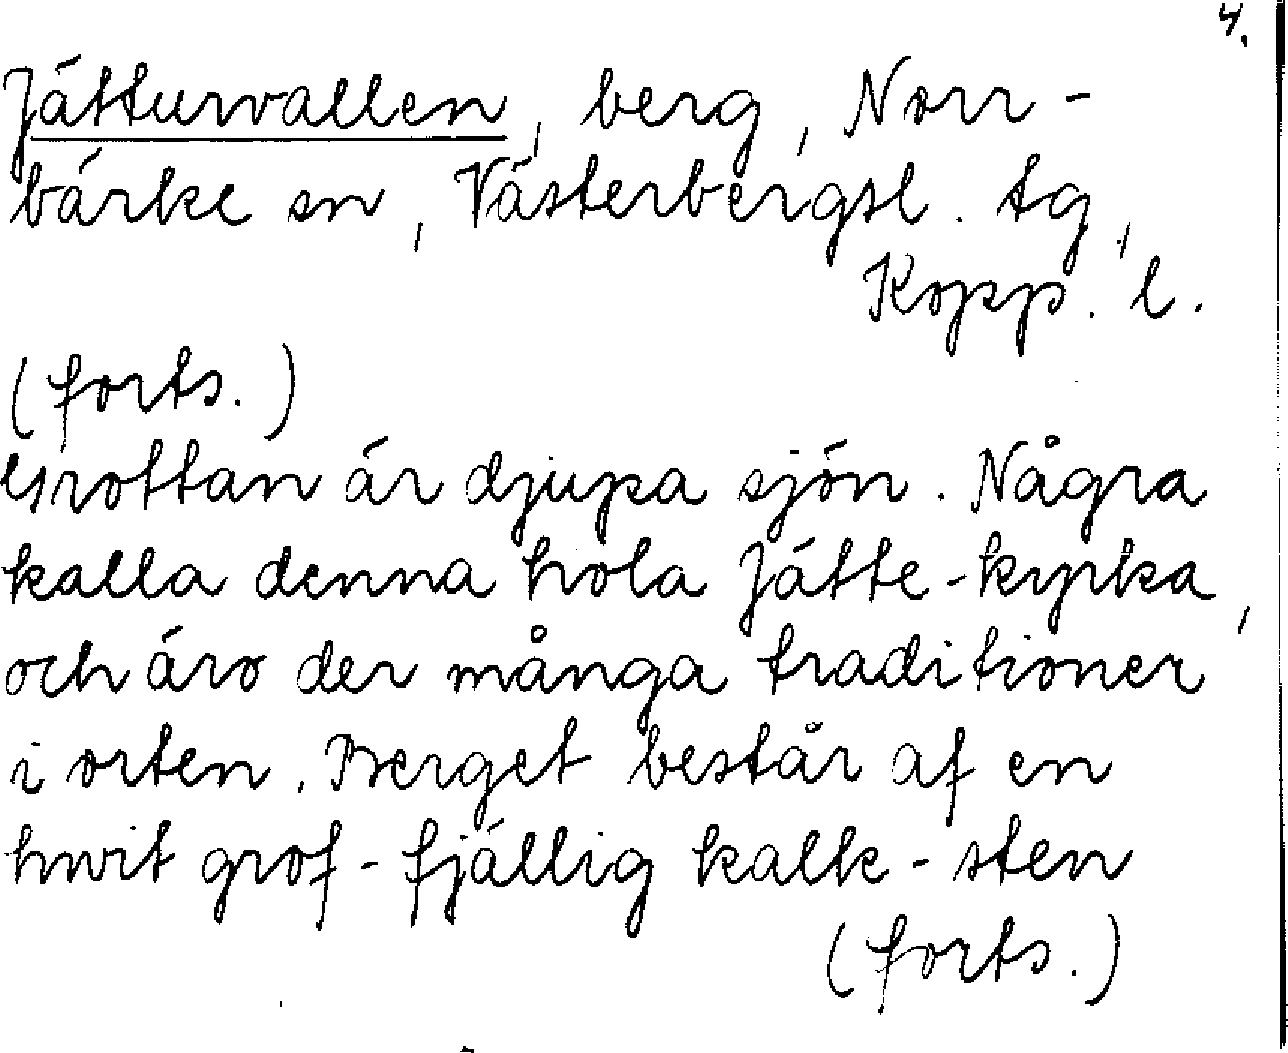 4.
Jätturvallen, berg, Norr-
bärke sn, Västerbergsl. tg,
Kopp. l.
(forts.)
Grottan är djupa sjön. Några
kalla denna hola Jätte-kyrka,
och äro der många traditioner
i orten. Berget består af en
hwit grof-fjällig kalk-sten
(forts.)